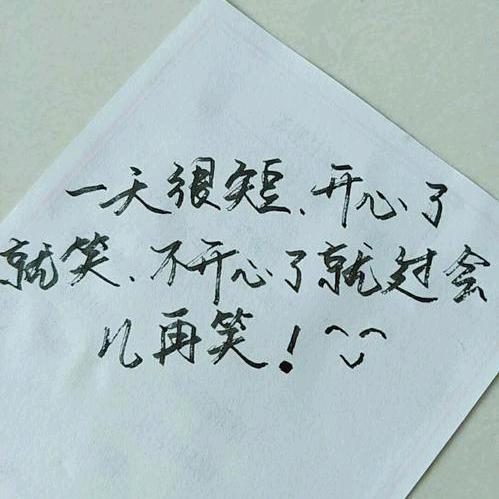 一天很短、开心了
就笑、不开心了就过会
儿再笑！